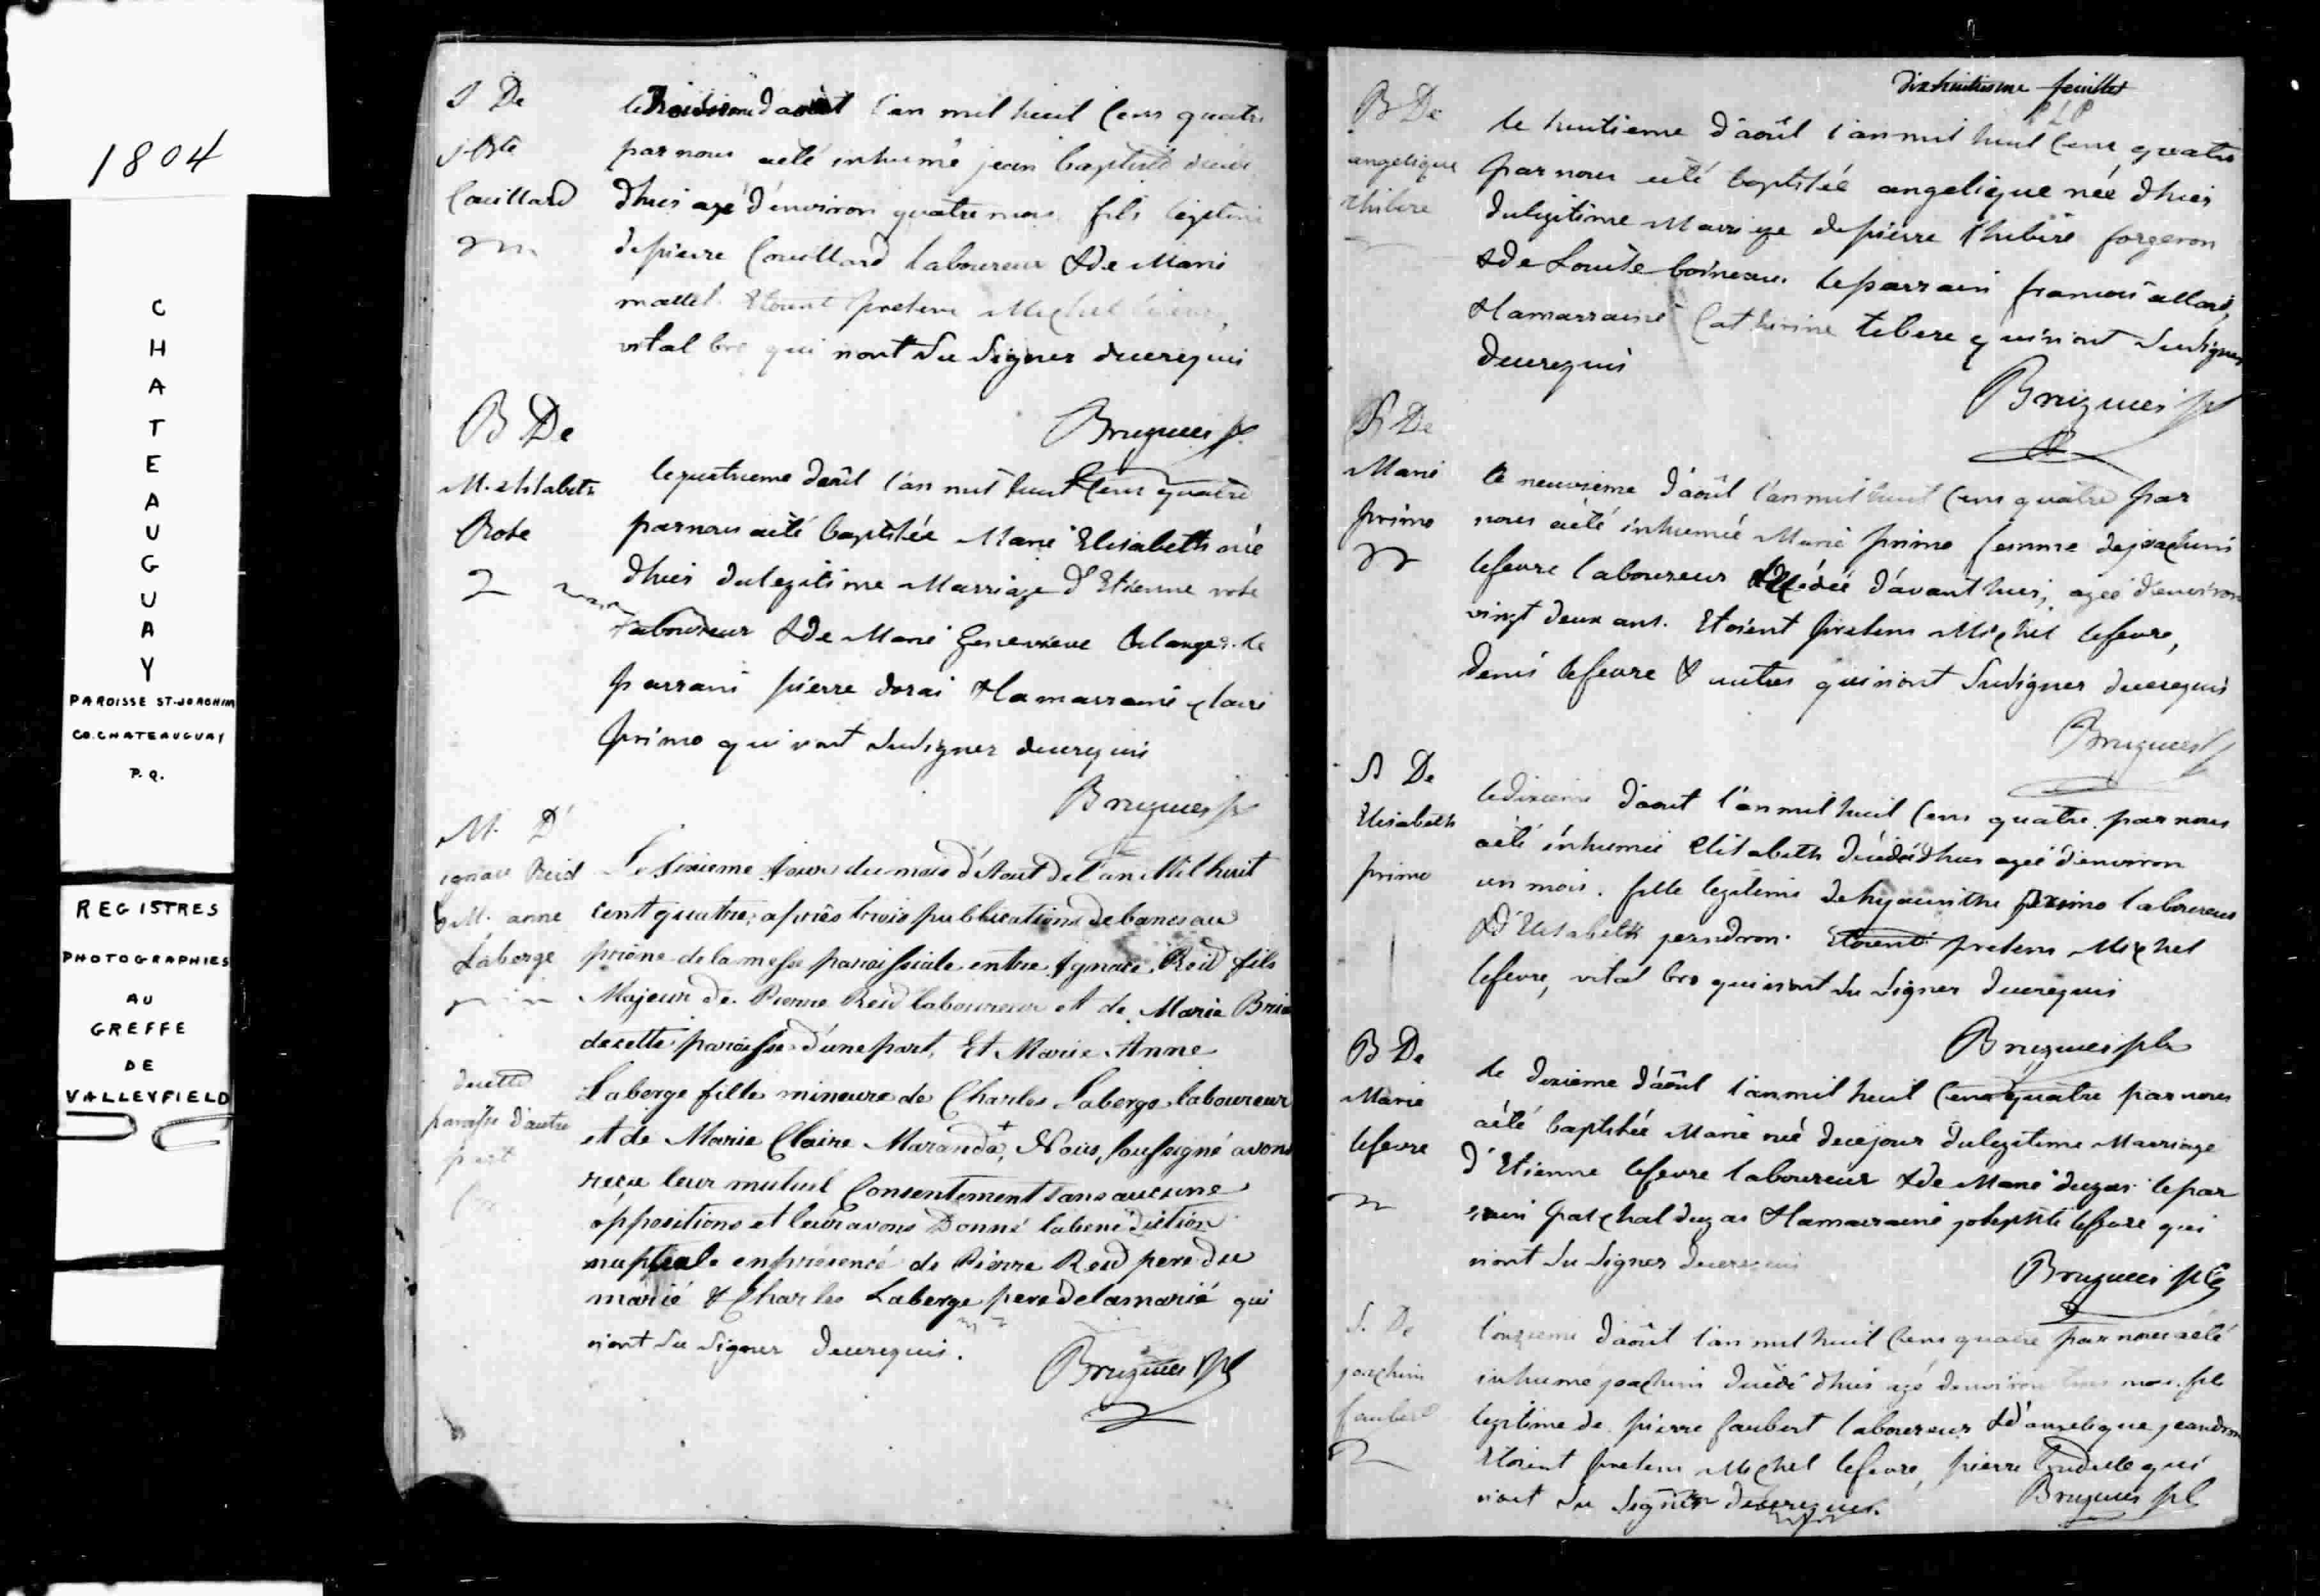 1804
CHATEAUGUAY
PAROISSE ST-JOACHIM
CO. CHATEAUGUAY
P.Q.
REGISTRES
PHOTOGRAPHIES
AU
GREFFE
DE
VALLEYFIELD
S De
j-Bte
Couillard
le troisieme d'août l'an mil huit Cens quatre
par nous aété inhumé jean baptiste
d'hier agé d'environ quatre mois fils legitime
de pierre Couillard laboureur & de Marie
mallet Etoient presens Michel
vital bro qui n'ont su signer decerequis
Bruguier ptre
B De
M. elisabeth
Robe
le quatrieme d'aôut l'an mil huit Cens quatre
par nous aété baptisée Marie Elisabeth née
d'hier du legitime Marriage d'Etienne robe
laboureur & de Marie Genevieve belanger. le
parrain pierre dorai & la marraine claire
primo qui n'ont su signer decerequis
Bruguier ptre
M. D'
ignace Reid
& M. anne
Laberge
Le Sixieme jour du mois d'Aout de l'an Mil huit
cent quatre, après trois publications de bancs au
prône de la messe paroissiale entre Ignace Reid fils
Majeur de Pierre Reid laboureur et de Marie
de cette paroisse d'une part, Et Marie Anne
Laberge fille mineure de Charles Laberge laboureur
et de Marie Claire Maranda,+ Nous, soussigné avons
de cette
paroisse d'autre
part
reçu leur mutuel Consentement sans aucune
oppositions et leur avons Donné la benediction
nuptiale en présence de Pierre Reid pere du
marié & Charles Laberge pere de la marié qui
n'ont su signer decerequis.
Bruguier ptre
Dixhuitieme feuillet
B De
angelique
thibere
le huitieme d'août l'an mil huit Cens quatre
par nous aété baptisée angelique née d'hier
du legitime Marriage de pierre thibere forgeron
& de Louise boineau. le parrain francois allard,
& la marraine Catherine tebere qui n'ont su signer
decerequis
Bruguier ptre
B De
Marie
primo
le neuvieme d'août l'an mil huit Cens quatre par
nous aété inhumée Marie primo femme de joachim
lefevre laboureur décédée d'avant hier, agée d'environ
vingt deux ans. Etoient presens Michel lefevre,
denis lefevre & autres qui n'ont su signer decerequis
Bruguier ptre
S De
Elisabeth
primo
le dixieme d'aout l'an mil huit Cens quatre par nous
aété inhumée Elisabeth décédée d'hier agée d'environ
un mois. fille legitime de hyacinthe primo laboureur
& d'Elisabeth jeandron. Etoient presens Michel
lefevre, vital bro qui n'ont su signer decerequis
Bruguier ptre
B De
Marie
lefevre
le dixieme d'août l'an mil huit Cens quatre par nous
aété baptisée Marie née de ce jour du legitime Marriage
d'Etienne lefevre laboureur & de Marie dugas le par
rain paschal dugas & la marraine josephte lefevre qui
n'ont su signer decerequis
Bruguier ptre
S. De
joachim
faubert
l'onzieme d'août l'an mil huit Cens quatre par nous aété
inhumé joachim décédé d'hier agé d'environ trois mois. fils
legitime de pierre faubert laboureur & d'angelique jeandron
Etoient presens Michel lefevre, pierre qui
n'ont su signer decerequis.
Bruguier ptre